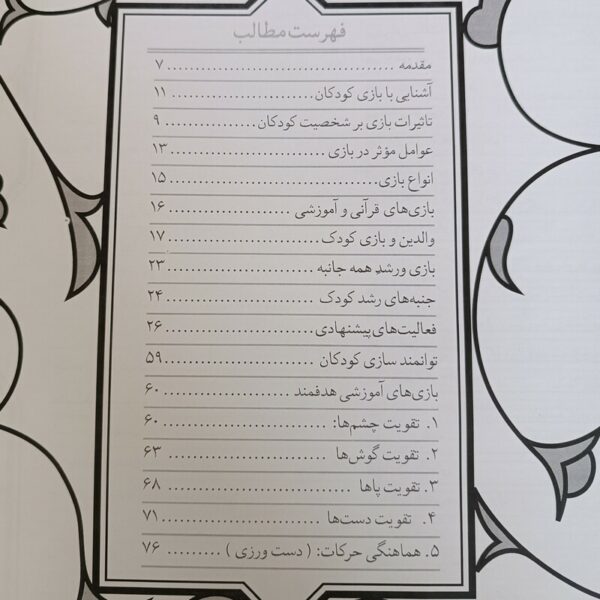 فهرست مطالب
مقدمه ........................................ ۷
آشنایی با بازی کودکان......................... ۱۱
تاثیرات بازی بر شخصیت کودکان................ ۹
عوامل مؤثر در بازی ............................ ۱۳
انواع بازی..................................... ۱۵
بازی‌های قرآنی و آموزشی ..................... ۱۶
والدین و بازی کودک........................... ۱۷
بازی ورشد همه جانبه ......................... ۲۳
جنبه‌های رشد کودک .......................... ۲۴
فعالیت‌های پیشنهادی.......................... ۲۶
توانمند سازی کودکان .......................... ۵۹
بازی‌های آموزشی هدفمند ...................... ۶۰
۱. تقویت چشم‌ها: ............................. ۶۰
۲. تقویت گوش‌ها ............................. ۶۳
۳. تقویت پاها ................................ ۶۸
۴. تقویت دست‌ها ............................ ۷۱
۵. هماهنگی حرکات: ( دست ورزی ) ......... ۷۶